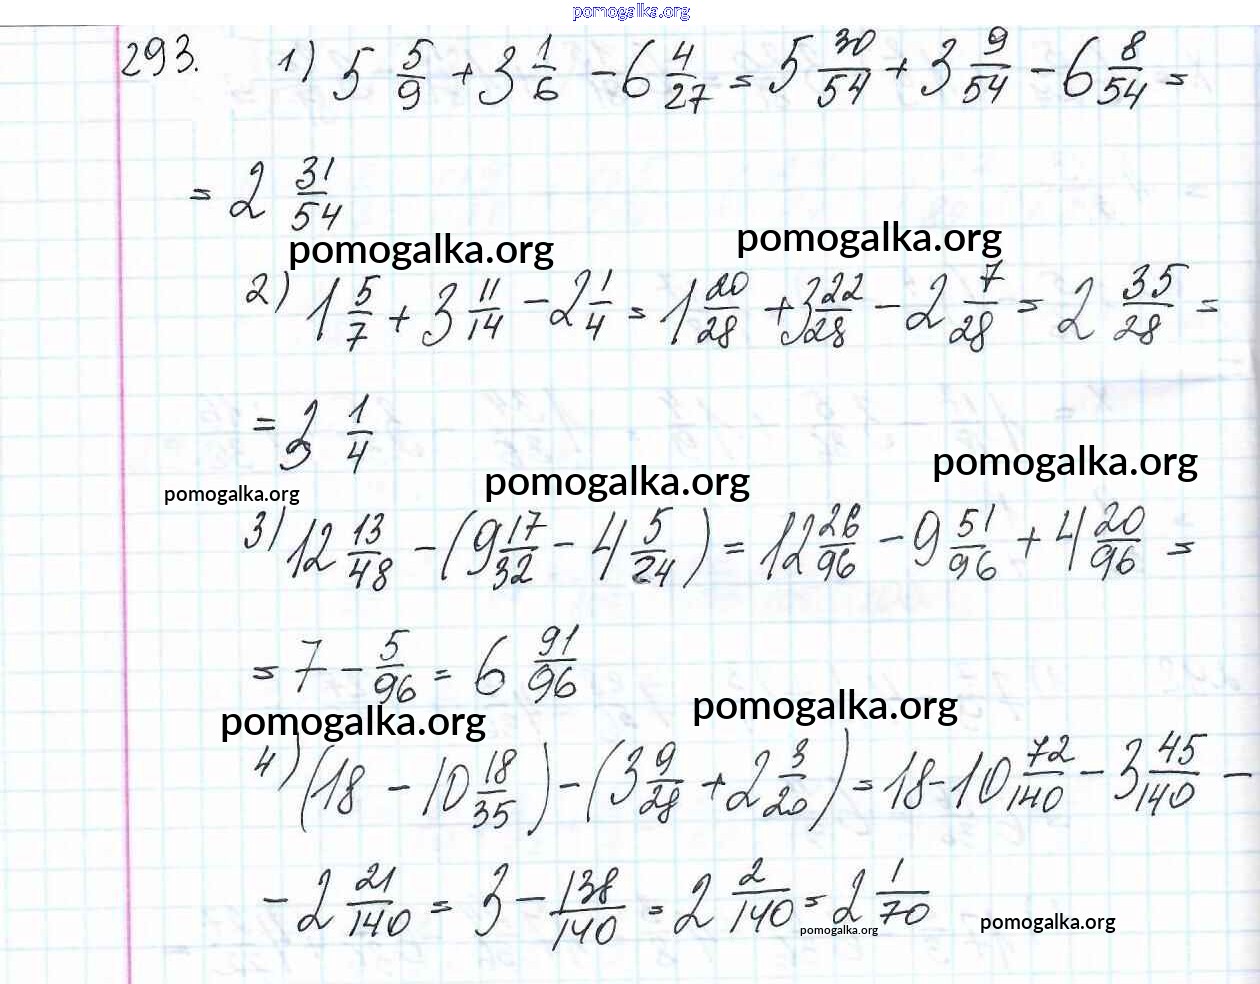 pomogalka.org
293. 1) 5 5/9 + 3 1/6 - 6 4/27 = 5 30/54 + 3 9/54 - 6 8/54 =
= 2 31/54
pomogalka.org pomogalka.org
2) 1 5/7 + 3 11/14 - 2 1/4 = 1 20/28 + 3 22/28 - 2 7/28 = 2 35/28 =
= 3 1/4
pomogalka.org pomogalka.org pomogalka.org
3) 12 13/48 - (9 17/32 - 4 5/24) = 12 26/96 - 9 51/96 + 4 20/96 =
= 7 - 5/96 = 6 91/96
pomogalka.org pomogalka.org
4) (18 - 10 18/35) - (3 9/28 + 2 3/20) = 18 - 10 72/140 - 3 45/140 -
- 2 21/140 = 3 - 138/140 = 2 2/140 = 2 1/70
pomogalka.org pomogalka.org